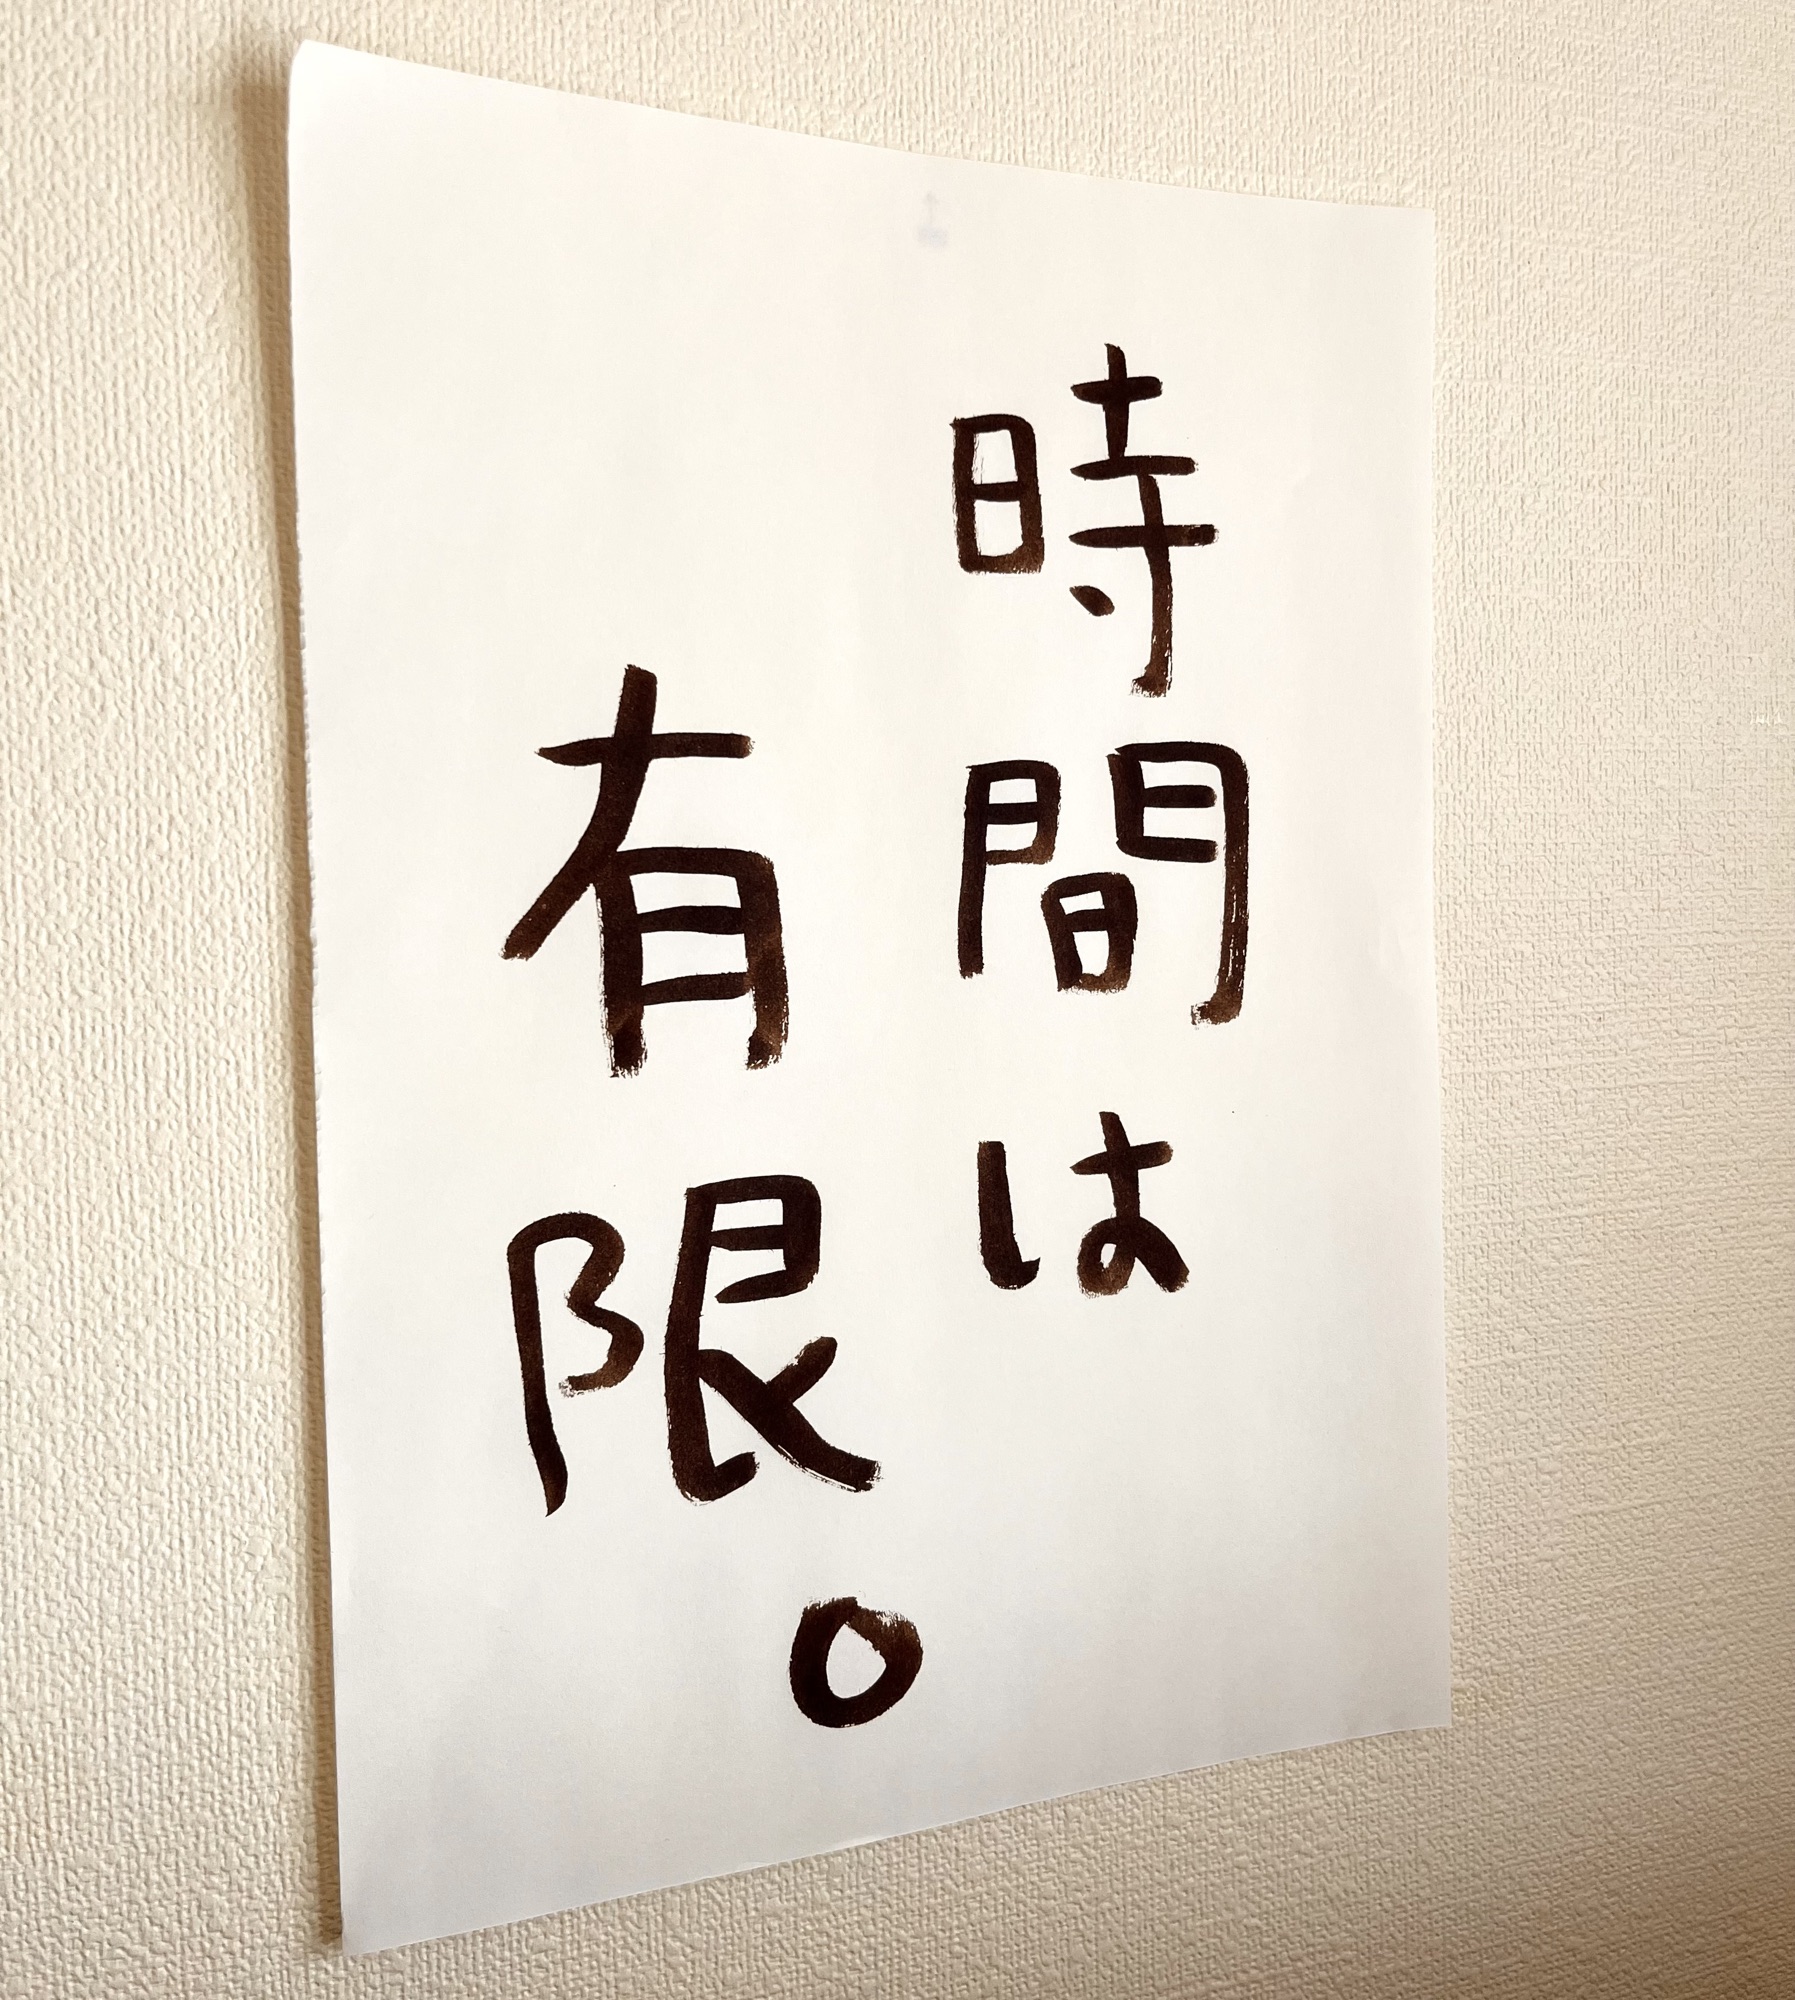 時間は
有限。